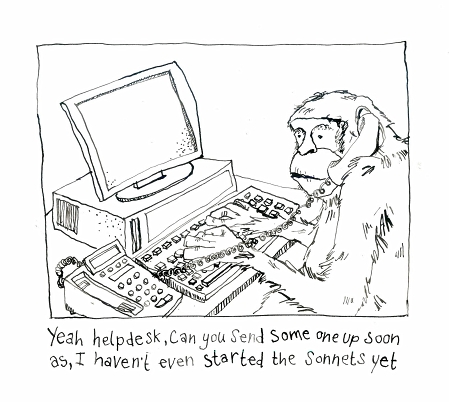 Yeah helpdesk, Can you send some one up soon
as, I haven't even started the Sonnets yet